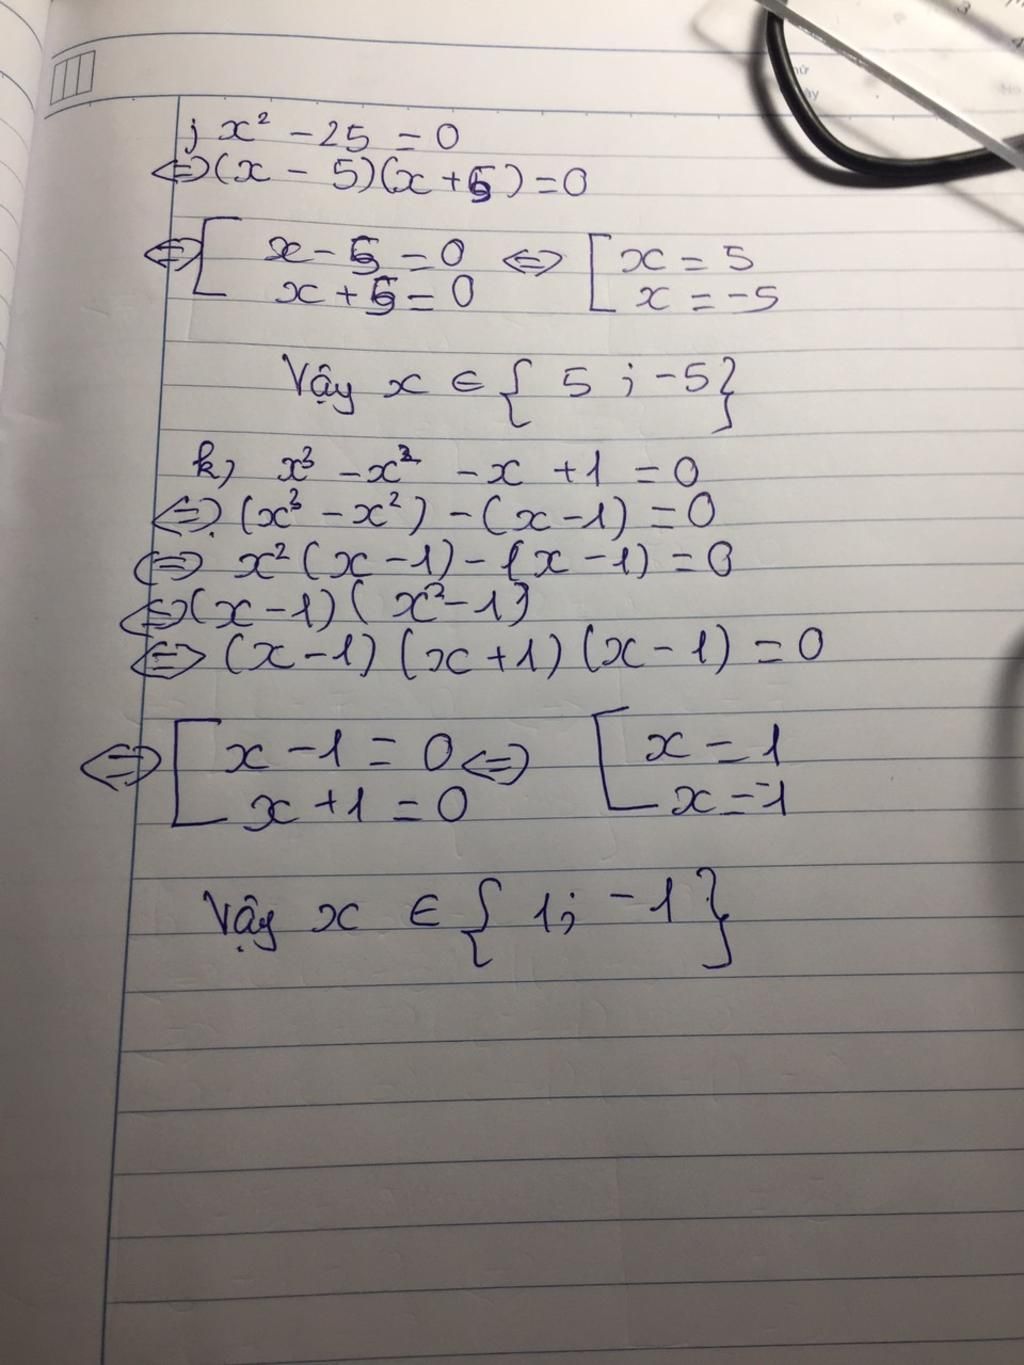 j x² - 25 = 0
⇔ (x - 5)(x + 5) = 0
⇔ [ x - 5 = 0 ⇔ [ x = 5
x + 5 = 0 x = -5
Vậy x ∈ { 5 ; -5}
k, x³ - x² - x + 1 = 0
⇔ (x³ - x²) - (x - 1) = 0
⇔ x² (x - 1) - (x - 1) = 0
⇔ (x - 1) ( x² - 1)
⇔ (x - 1) (x + 1) (x - 1) = 0
⇔ [ x - 1 = 0 ⇔ [ x = 1
x + 1 = 0 x = -1
Vậy x ∈ { 1; -1 }